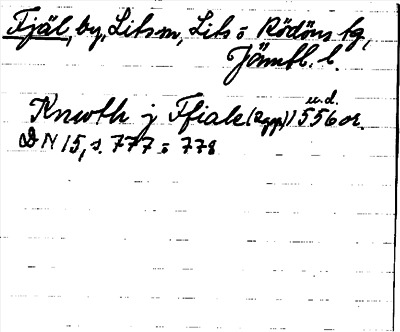 Fjäl, by, Lits sn, Lits o Rödöns tg,
Jämtl. l.
u. d.
Knwth j Ffiale (2 gpp) 1556 or.
DN 15, s. 777 o 778